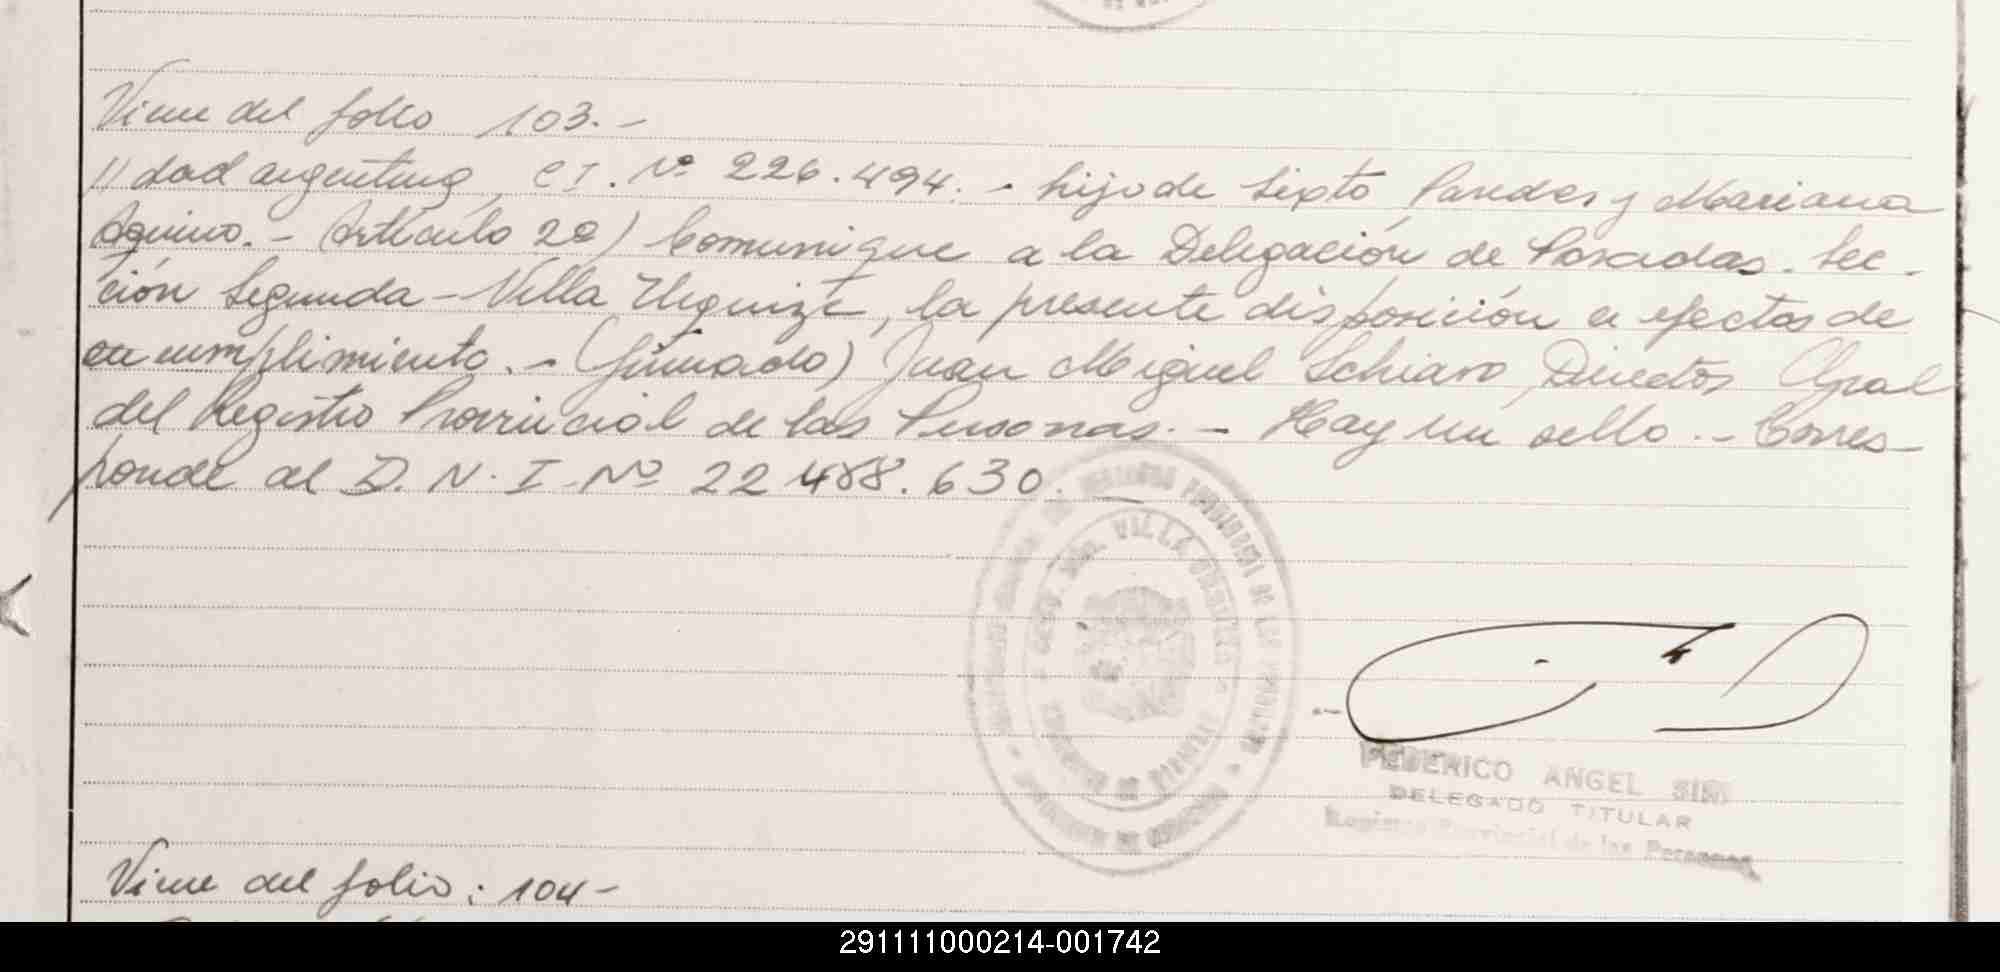 Viene del folio 103.-
//dad argentina, C I. Nº 226.494.- hijo de Sixto Paredes y Mariana
Aquino.- Artículo 2º) Comunique a la Delegación de Posadas. Sec-
ción Segunda - Villa Urquiza, la presente disposición a efectos de
su cumplimiento.- (Firmado) Juan Miguel Schiaro, Director Gral
del Registro Provincial de las Personas.- Hay un sello.- Corres-
ponde al D. N. I. Nº 22 488.630.
VILLA URQUIZA
FEDERICO ANGEL
DELEGADO TITULAR
Registro Provincial de las Personas
Viene del folio: 104-
291111000214-001742